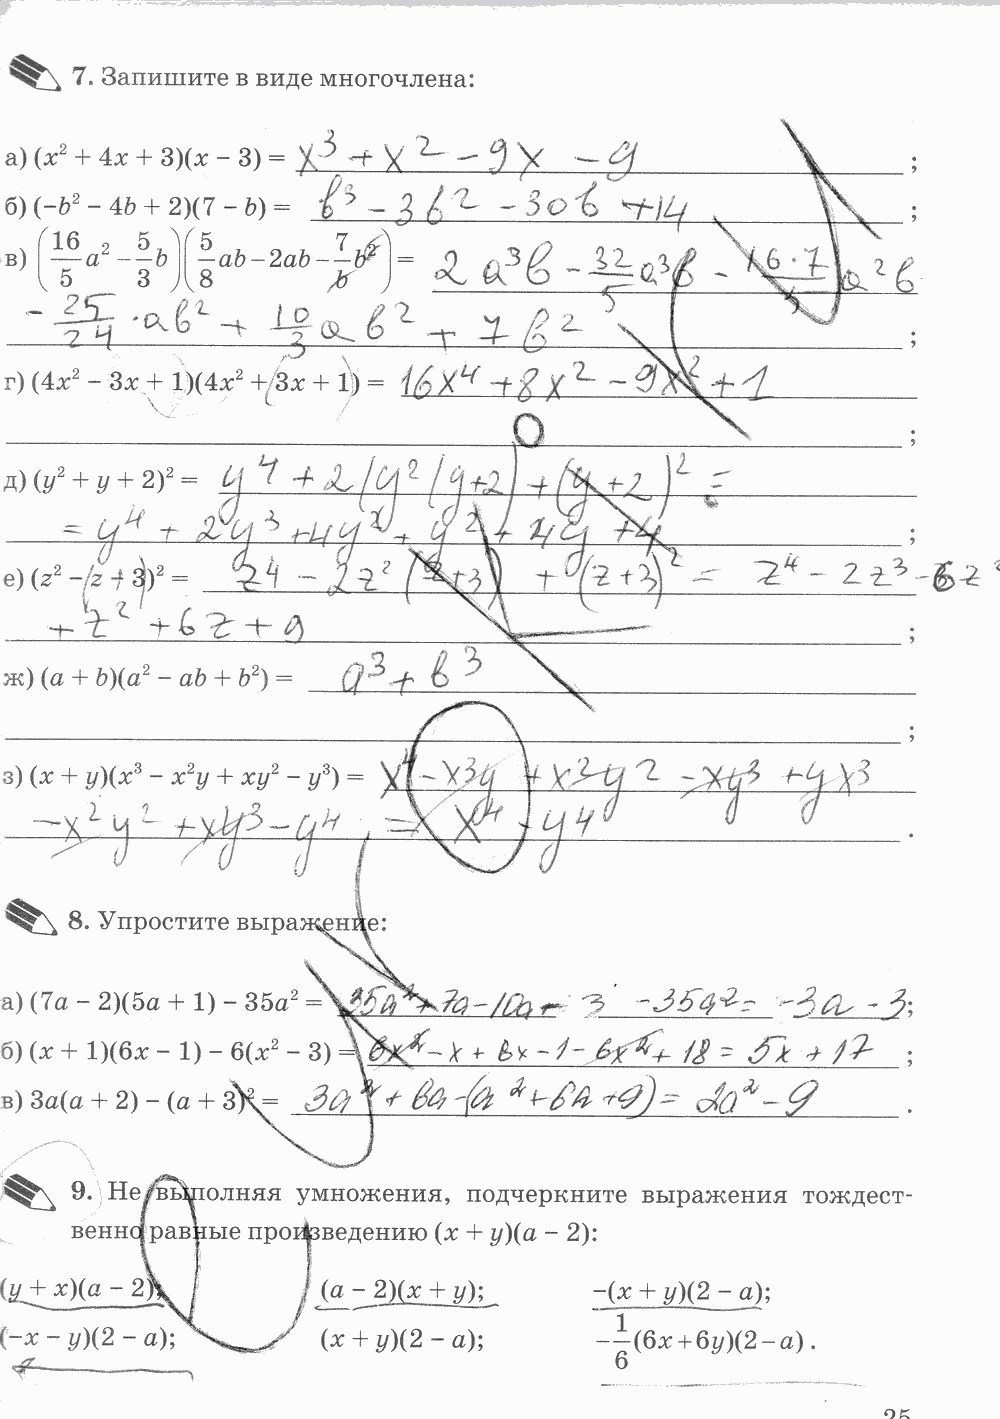 7. Запишите в виде многочлена:
а) (x² + 4x + 3)(x − 3) = x³ + x² − 9x − 9 ;
б) (−b² − 4b + 2)(7 − b) = b³ − 3b² − 30b + 14 ;
в) (16/5 a² − 5/3 b)(5/8 ab − 2ab − 7/b b²) = 2a³b − 32/5 a³b − 16·7/5 a²b
− 25/24 · ab² + 10/3 ab² + 7b² ;
г) (4x² − 3x + 1)(4x² + 3x + 1) = 16x⁴ + 8x² − 9x² + 1
;
д) (y² + y + 2)² = y⁴ + 2(y²(y+2) + (y+2)² =
= y⁴ + 2y³ + 4y² + y² + 4y + 4 ;
е) (z² − (z + 3)² = z⁴ − 2z²(z+3) + (z+3)² = z⁴ − 2z³ − 6z²
+ z² + 6z + 9 ;
ж) (a + b)(a² − ab + b²) = a³ + b³
;
з) (x + y)(x³ − x²y + xy² − y³) = x⁴ − x³y + x²y² − xy³ + yx³
− x²y² + xy³ − y⁴ = x⁴ − y⁴ .
8. Упростите выражение:
а) (7a − 2)(5a + 1) − 35a² = 35a² + 7a − 10a − 3 − 35a² = −3a − 3;
б) (x + 1)(6x − 1) − 6(x² − 3) = 6x² − x + 6x − 1 − 6x² + 18 = 5x + 17 ;
в) 3a(a + 2) − (a + 3)² = 3a² + 6a − (a² + 6a + 9) = 2a² − 9 .
9. Не выполняя умножения, подчеркните выражения тождест-
венно равные произведению (x + y)(a − 2):
(y + x)(a − 2); (a − 2)(x + y); −(x + y)(2 − a);
(−x − y)(2 − a); (x + y)(2 − a); −1/6(6x + 6y)(2 − a) .
25